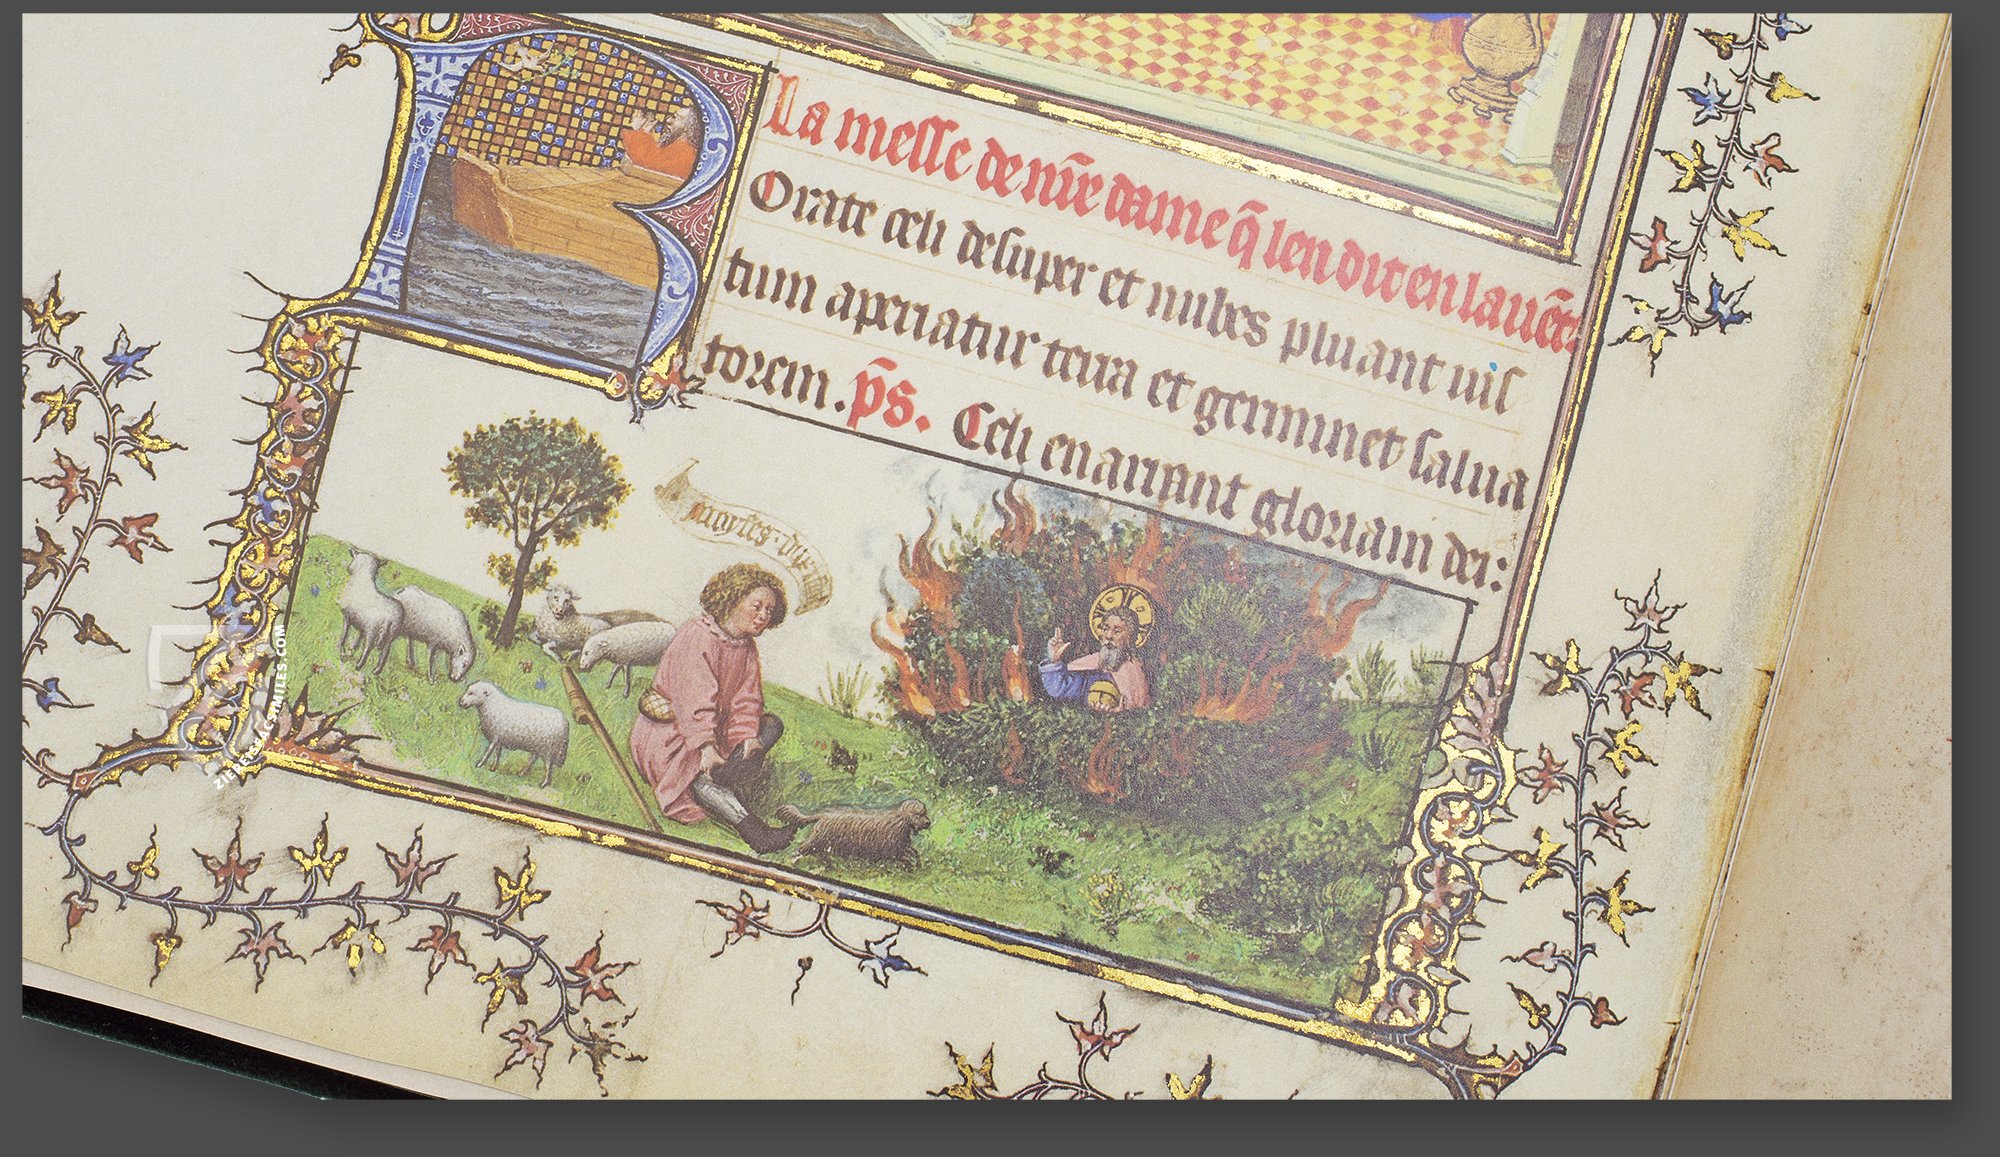 La messe de nr̄e dame q̄ len dit en lauēt.
Orate celi desuper et nubes pluant ius
tum aperiatur terra et germinet salua
torem. p̄s. Celi enarrant gloriam dei:
moyses
ZIEREIS-FACSIMILES.COM